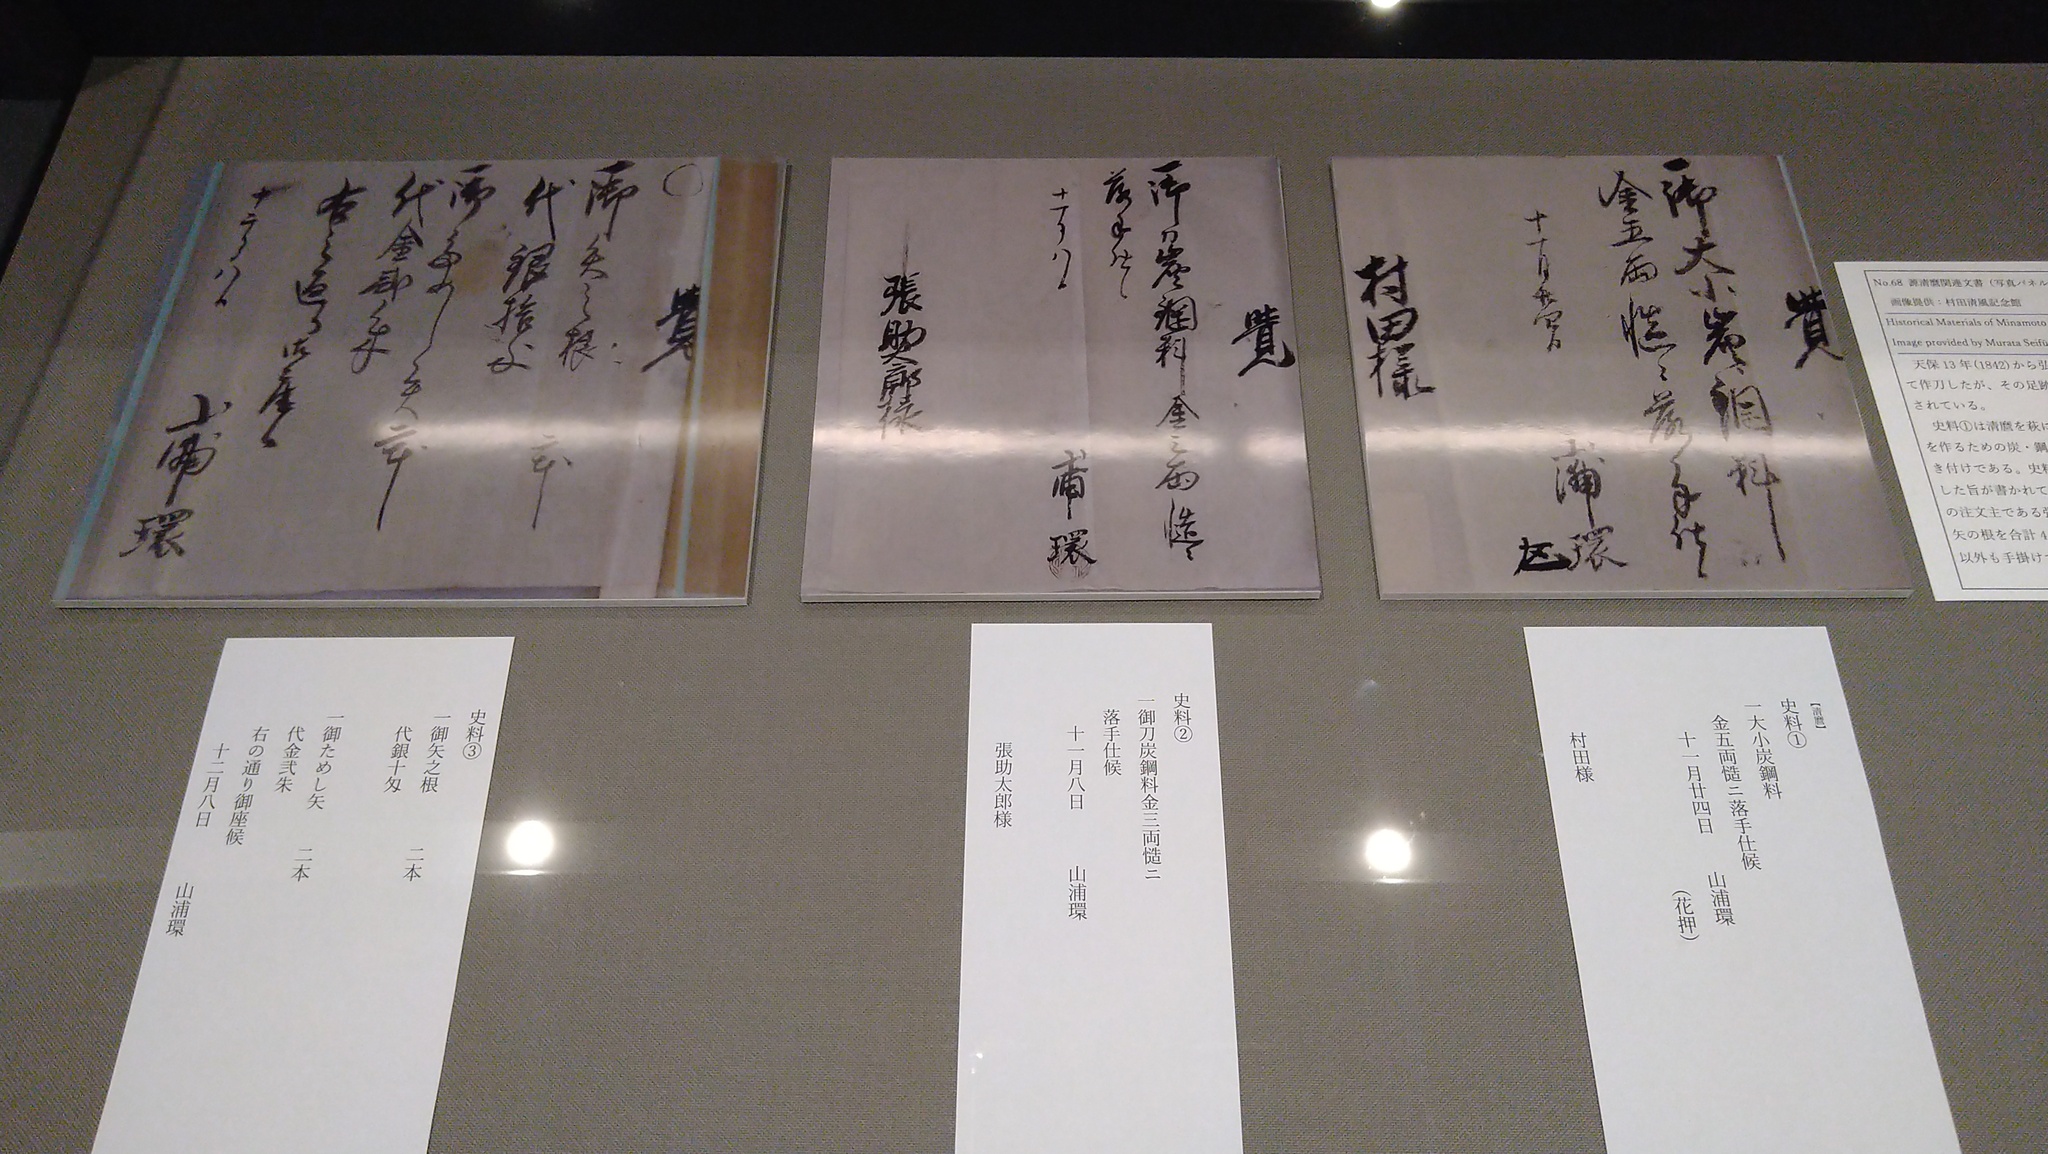 No.68 源清麿関連文書（写真パネル
画像提供：村田清風記念館
Historical Materials of Minamoto
Image provided by Murata Seifū
天保13年(1842)から弘
て作刀したが、その足跡
されている。
史料①は清麿を萩に
を作るための炭・鋼
き付けである。史料
した旨が書かれて
の注文主である張
矢の根を合計4
以外も手掛け
覺
一御大小炭鋼料
金五両慥ニ落手仕候
十一月廿四日
山浦環
村田様
覺
一御刀炭鋼料金三両慥ニ
落手仕候
十一月八日
山浦環
張助太郎様
覺
御矢之根 二本
代銀拾匁
御ためし矢二本
代金弐朱
右之通り御座候
十二月八日
山浦環
【清麿】
史料①
一大小炭鋼料
金五両慥ニ落手仕候
十一月廿四日 山浦環
（花押）
村田様
史料②
一御刀炭鋼料金三両慥ニ
落手仕候
十一月八日 山浦環
張助太郎様
史料③
一御矢之根 二本
代銀十匁
一御ためし矢 二本
代金弐朱
右の通り御座候
十二月八日 山浦環